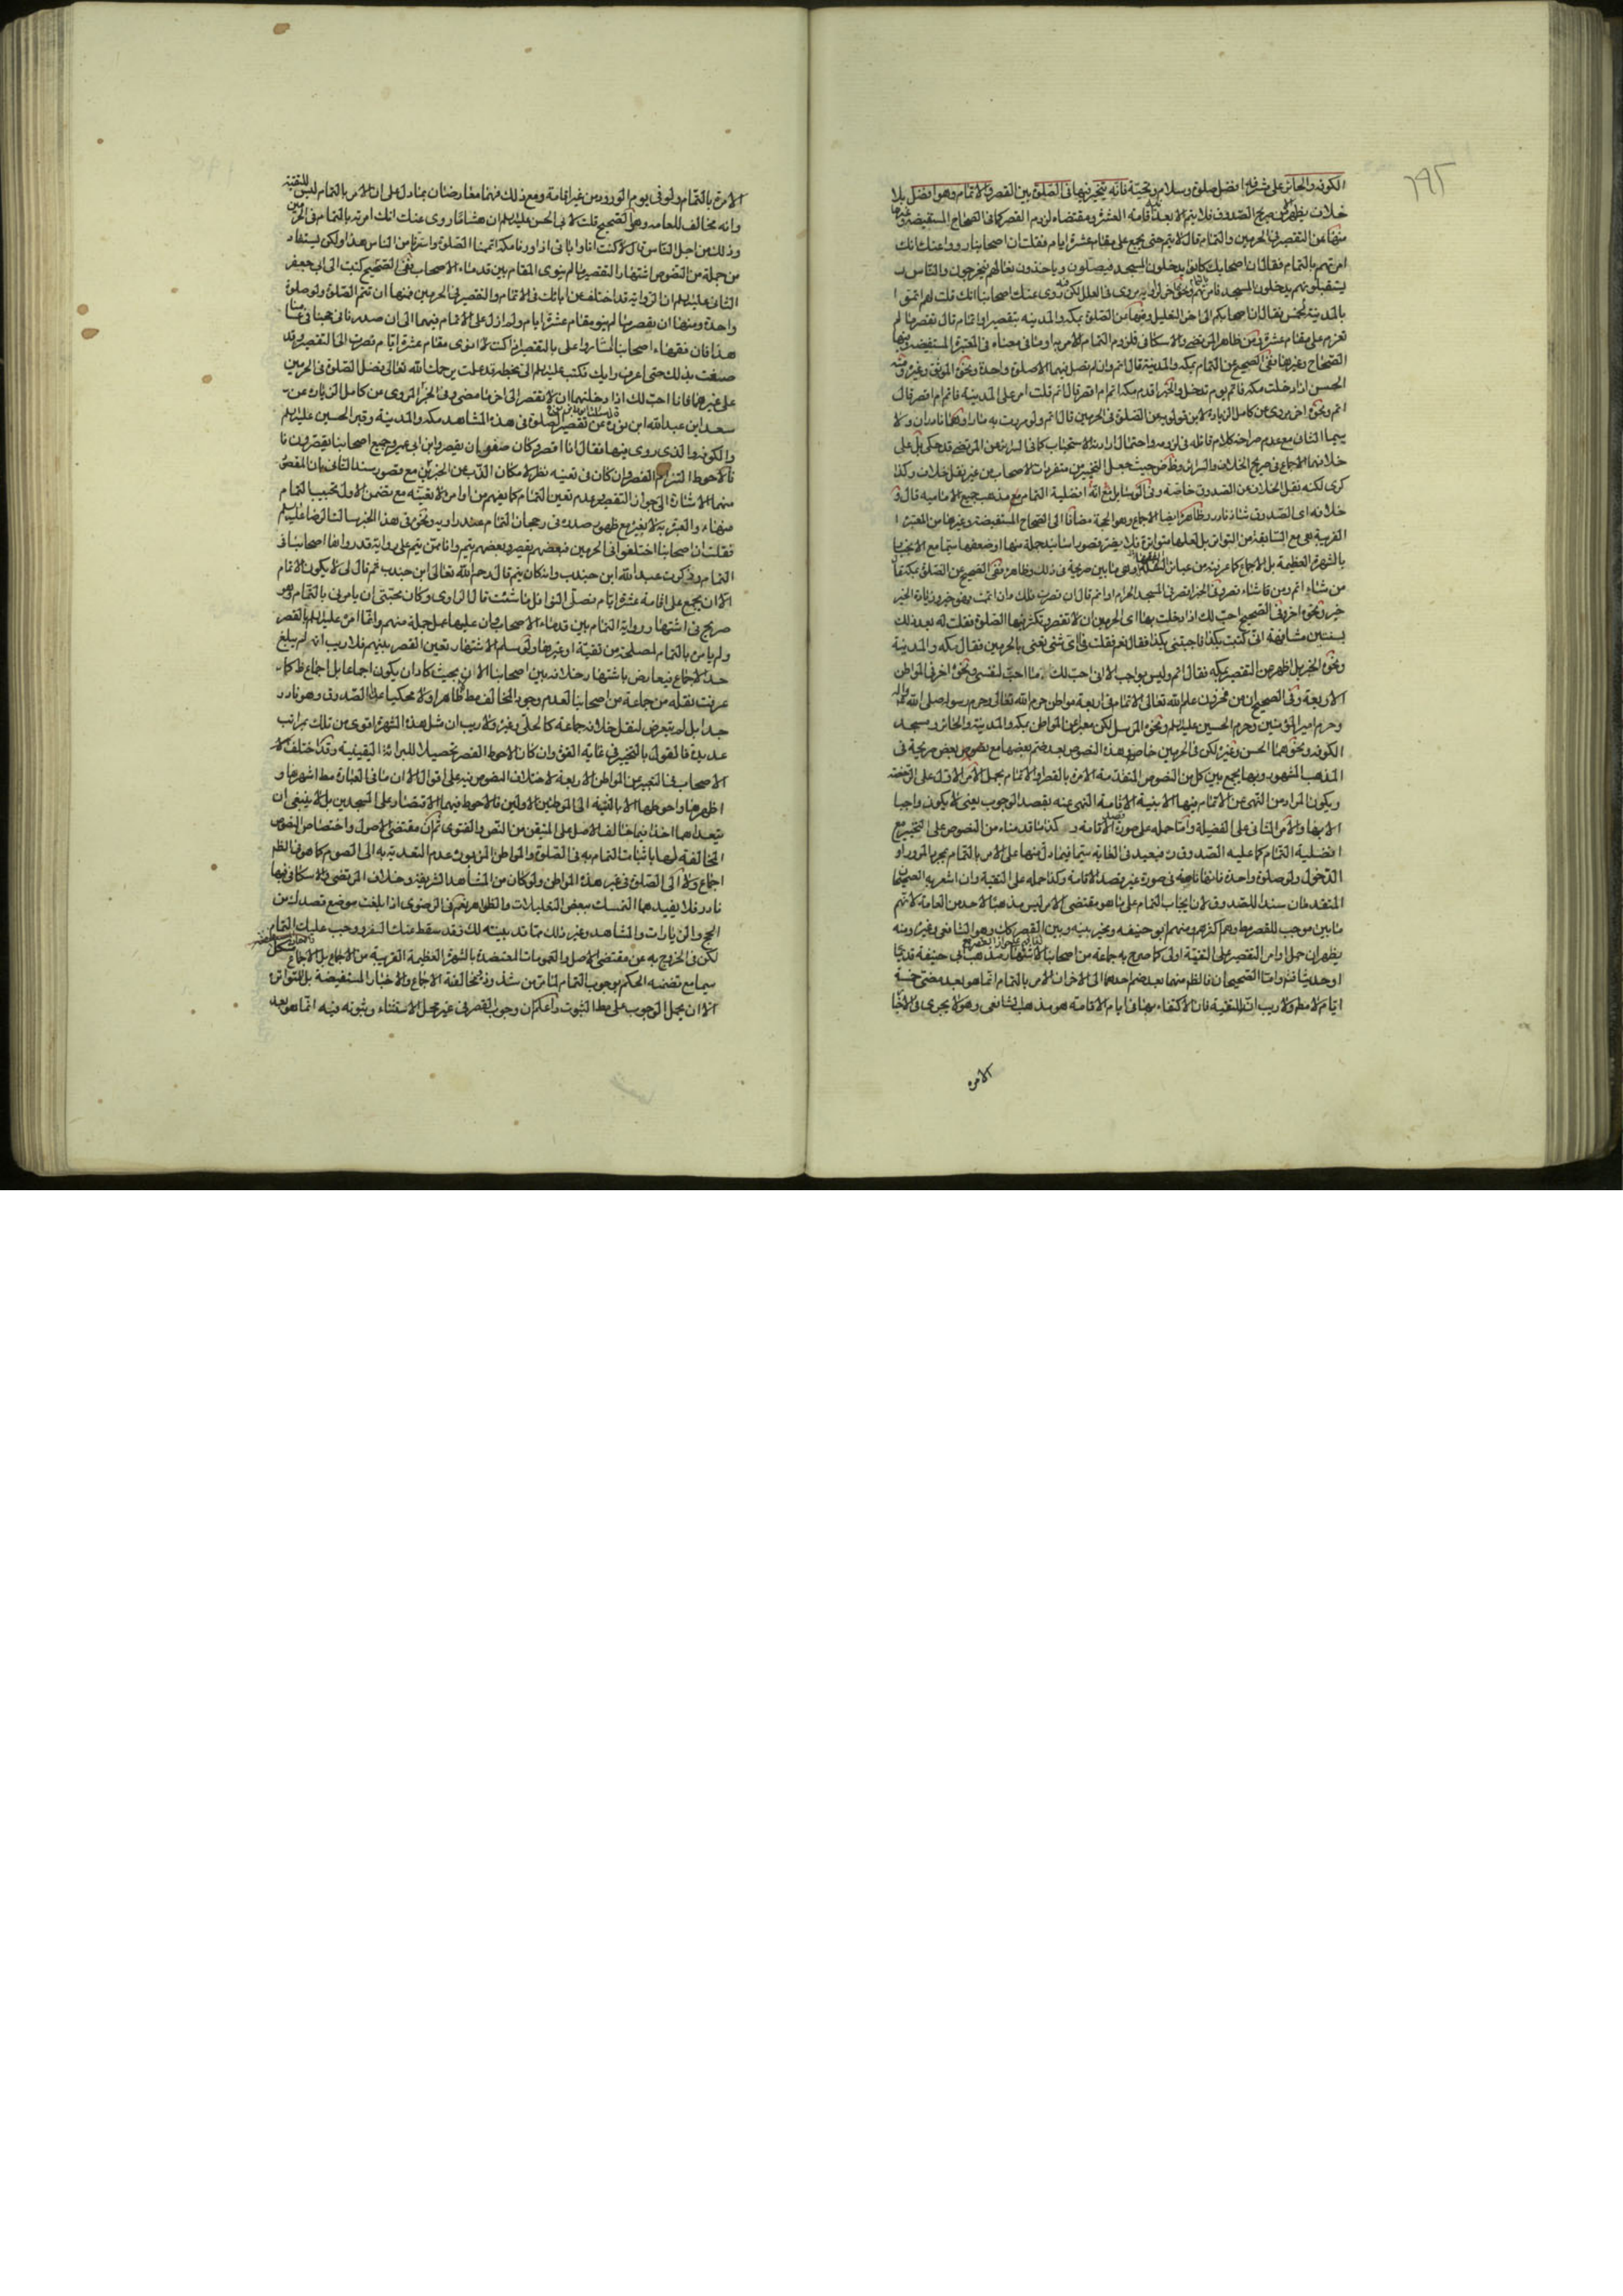 ١٩٥
الكوفة والحائر على مشرفها افضل صلوة وسلام وتحية فانه يتخير فيها في الصلوة بين القصر والاتمام وهو افضل بلا
خلاف يظهر الا من صريح الصدوق فلا يتم الا بعد اقامة العشرة ومقتضاه لزوم القصر كما في الصحاح المستفيضة وغيرها
منها عن التقصير في الحرمين والتمام قال لا يتم حتى يجمع على مقام عشرة ايام فقلت ان اصحابنا رووا عنك انك
امرتهم بالتمام فقال ان اصحابك كانوا يدخلون المسجد فيصلون وياخذون نعالهم فيخرجون والناس
يستقبلونهم يدخلون المسجد فامرتهم ونحوه اخر يروى في العلل لكن فيه روى عنك اصحابنا انك قلت لهم اتموا
بالمدينة لخمس فقال ان اصحابكم الى اخر التعليل ومنها عن الصلوة بمكة والمدينة بتقصير او اتمام قال تقصر ما لم
تعزم على مقام عشرة
الصحاح وغيرها ففي الصحيح عن التمام بمكة والمدينة قال اتم وان لم تصل فيهما الا صلوة واحدة ونحوه الموثق وغيره
الحسن اذا دخلت مكة فاتم يوم تدخل والخبر اقدم مكة اتم ام اقصر قال اتم قلت امر على المدينة فاتم ام اقصر قال
اتم ونحوه اخر يروى عن كامل الزيارة لابن قولويه عن الصلوة في الحرمين قال اتم ولو مررت به مارا وهما نادران ولا
سيما الثاني مع عدم صراحة كلام قائله في لزومه واحتمال ارادته الاستحباب كما في السرائر عن المرتضى قد حكى بل على
خلافهما الاجماع في صريح الخلاف والسرائر وظاهر حيث جعل التخيير من متفردات الاصحاب من غير نقل خلاف وكذا
كرى لكنه نقل الخلاف عن الصدوق خاصة وفي الوسائل مع انه افضلية التمام مع مذهب جميع الامامية قال و
خلافه اي الصدوق شاذ نادر وظاهر ايضا الاجماع وهو الحجة مضافا الى الصحاح المستفيضة وغيرها من المعتبرة
القريبة هي مع السابقة من التواتر بل لعلها متواترة فلا يضر قصور اسانيد جملة منها او ضعفها سيما مع الانجبار
بالشهرة العظيمة بل الاجماع كما عرفته من عبائر وهي ما بين صريحة في ذلك وظاهرة ففي الصحيح عن الصلوة بمكة قال
من شاء اتم ومن شاء قصر وفي الخبر اقصر في المسجد الحرام او اتم قال ان قصرت فلك وان اتممت فهو خير وزيادة الخير
خير ونحوه اخر وفي الصحيح احب لك اذا دخلت بهما اي الحرمين ان لا تقصر وتكثر فيها الصلوة فقلت له بعد ذلك
بسنتين مشافهة اني كتبت بكذا فاجبتني بكذا فقال نعم فقلت فاي شئ تعني بالحرمين فقال مكة والمدينة
ونحوه الخبر بل اظهر عن التقصير بمكة فقال اتم وليس بواجب الا اني احب لك ما احب لنفسي ونحوه اخر في المواطن
الاربعة وفي الصحيح ان من مخزون علم الله تعالى الاتمام في اربعة مواطن حرم الله تعالى وحرم رسوله صلى الله عليه
وحرم امير المؤمنين وحرم الحسين عليهم ونحوه المرسل لكن معبرا عن المواطن بمكة والمدينة والحائر ومسجد
الكوفة ونحوهما الحسن وغيره لكن في الحرمين خاصة وهذه النصوص بعد ضم بعضها مع بعض صريحة في
المذهب المشهور وبها يجمع بين كل من النصوص المتقدمة الامرة بالقصر والاتمام بحمل الامر الاول على الرخصة
ويكون المراد من النهي عن الاتمام فيها الا بنية الاقامة النهي عنه بقصد الوجوب يعني لا يكون واجبا
الا بها والامر الثاني على الفضيلة واما حمله على صورة الاقامة كما قدمناه من النصوص على التخيير مع
افضلية التمام كما عليه الصدوق ره فبعيد في الغاية سيما فيما دل منها على الامر بالتمام بمجرد المرور او
الدخول ولو صلوة واحدة فانها ناصة في صورة غير قصد الاقامة وكذا حمله على التقية وان اشعر به الصحيحان
المتقدمان سندا للصدوق لان ايجاب التمام على ما هو مقتضى الامر ليس مذهبا لاحد من العامة لانهم
ما بين موجب للقصر مط وهم اكثرهم ومنهم ابو حنيفة ومخير بينه وبين القصر كان وهو الشافعي وغيره ومنه
يظهر ان حمل اوامر التقصير على التقية اولى كما صرح به جماعة من اصحابنا لاشتهار مذهب ابي حنيفة قديما
او حديثا فتم واما الصحيحان فالظم منهما بعد ضم احدهما الى الاخر ان الامر بالتمام انما هو بعد مضي خمسة
ايام لا مط ولا ريب انه للتقية فان الاكتفاء بها في ايام الاقامة هو مذهب الشافعي وهو لا يجرى في الاخبار
الامرة
الامرة بالتمام ولو في يوم الورود من غير اقامة ومع ذلك فهما معارضان بما دل على ان الامر بالتمام ليس للتقية
وانه مخالف للعامة وهو الصحيح قلت لابي الحسن عليه السلم ان هشاما روى عنك انك امرته بالتمام في الحرمين
وذلك من اجل الناس قال لا كنت انا وابائي اذا وردنا مكة اتممنا الصلوة واستترنا من الناس هذا ولكن يستفاد
من جملة من النصوص اشتهار التقصير ما لم ينوى المقام بين قدماء الاصحاب ففي الصحيح كتبت الى ابي جعفر
الثاني عليه السلم ان الرواية قد اختلفت عن ابائك في الاتمام والتقصير في الحرمين فمنها ان تتم الصلوة ولو صلوة
واحدة ومنها ان يقصر ما لم ينو مقام عشرة ايام ولم ازل على الاتمام فيهما الى ان صدرنا في حجنا في عامنا
هذا فان فقهاء اصحابنا اشاروا على بالتقصير اذ كنت لا انوى مقام عشرة ايام فصرت الى التقصير وقد
ضقت بذلك حتى اعرف رايك فكتب عليه السلم الى بخطه قد علمت يرحمك الله تعالى فضل الصلوة في الحرمين
على غيرهما فانا احب لك اذا دخلتهما ان لا تقصر الى اخر ما مضى وفي الخبر المروى عن كامل الزيارة عن
سعد ابن عبدالله ايوب بن نوح عن تقصير الصلوة في هذه المشاهد مكة والمدينة وقبر الحسين عليه السلم
والكوفة والذى روى فيها فقال انا اقصر وكان صفوان يقصر وابن ابي عمير وجميع اصحابنا يقصرون
فالاحوط التزام القصر وان كان في تعينه نظر لامكان الذب عن الخبرين مع قصور سند الثاني بان المفهوم
منهما الاشارة الى جواز التقصير وعدم تعين التمام كما يفهم من اوامره لا تعينه مع تضمن الاول تحبيب التمام
فقلت ان اصحابنا اختلفوا في الحرمين فبعضهم يقصر وبعضهم يتم وانا ممن يتم على رواية قد رواها اصحابنا في
التمام وذكرت عبدالله ابن جندب وانه كان يتم قال رحم الله تعالى ابن جندب ثم قال لي لا يكون الاتمام
الا ان يجمع على اقامة عشرة ايام وصلى النوافل ما شئت قال الراوى وكان محبتي ان يامرني بالتمام وهو
صريح في اشتهار رواية التمام بين قدماء الاصحاب وان عليها عمل جملة منهم وانما امره عليه السلم بالقصر
ولم يامر بالتمام لمصلحة من تقية او غيرها ولو سلم الاشتهار بتعين القصر بينهم فلا ريب انه لم يبلغ
حد الاجماع فيعارض باشتهار خلافه بين اصحابنا الان بحيث كاد ان يكون اجماعا بل اجماع ظ كما
عرفت نقله من جماعة من اصحابنا لعدم وجود المخالف مط ظاهرا ولا محكيا عدا الصدوق وهو نادر
جدا بل لم يتعرض لنقل خلافه جماعة كالحلي وغيره ولا ريب ان مثل هذه الشهرة اقوى من تلك بمراتب
عديدة فالقول بالتخيير في غاية القوة وان كان الاحوط القصر تحصيلا للبرائة اليقينية وقد اختلف
الاصحاب في التعبير عن المواطن الاربعة لاختلاف النصوص فيه على اقوال الا ان ما في العبارة مط اشهرها و
اظهرها واحوطها الا بالنسبة الى الموطنين الاولين فالاحوط فيهما الاقتصار على المسجدين بل لا ينبغي ان
يتعداهما اخذا فيما خالف الاصل على المتيقن من النص والفتوى ثم ان مقتضى الاصول واختصاص النصوص
المخالفة لها باثبات التمام به في الصلوة والمواطن المزبورة عدم التعدية به الى الصوم كما هو الظم
اجماع ولا الى الصلوة في غير هذه المواطن ولو كان من المشاهد الشريفة وخلاف المرتضى والاسكافي فيها
نادر فلا يفيدهما التمسك ببعض التعليلات والظواهر نعم في الرضوى اذا بلغت موضع قصدك من
الحج والزيارات والمشاهد وغير ذلك مما قد بينته لك فقد سقط عنك السفر ووجب عليك التمام
لكن في الخروج به عن مقتضى الاصل والعمومات المعتضدة بالشهرة العظيمة القريبة من الاجماع بل الاجماع مشكل
سيما مع تضمنه الحكم بوجوب التمام لما مر من شذوذه ومخالفته الاجماع والاخبار المستفيضة بل المتواترة
الا ان يحمل الوجوب على مط الثبوت واعلم ان وجوب القصر في غير محل الاستثناء وثبوته فيه انما هو بعد